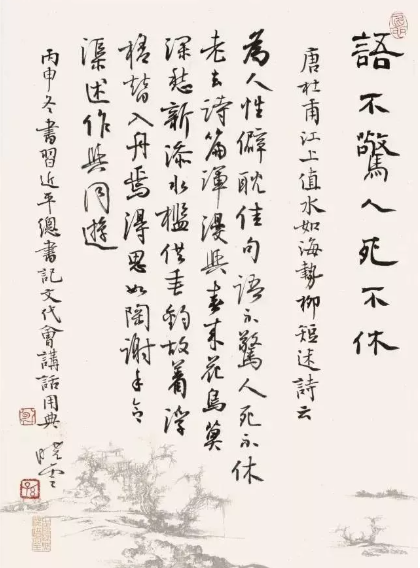 語不驚人死不休
唐杜甫江上值水如海勢聊短述詩云
為人性僻耽佳句語不驚人死不休
老去詩篇渾漫與春來花鳥莫
深愁新添水檻供垂釣故著浮
槎替入舟焉得思如陶謝手令
渠述作與同遊
丙申冬書習近平總書記文代會講話用典
曉雲